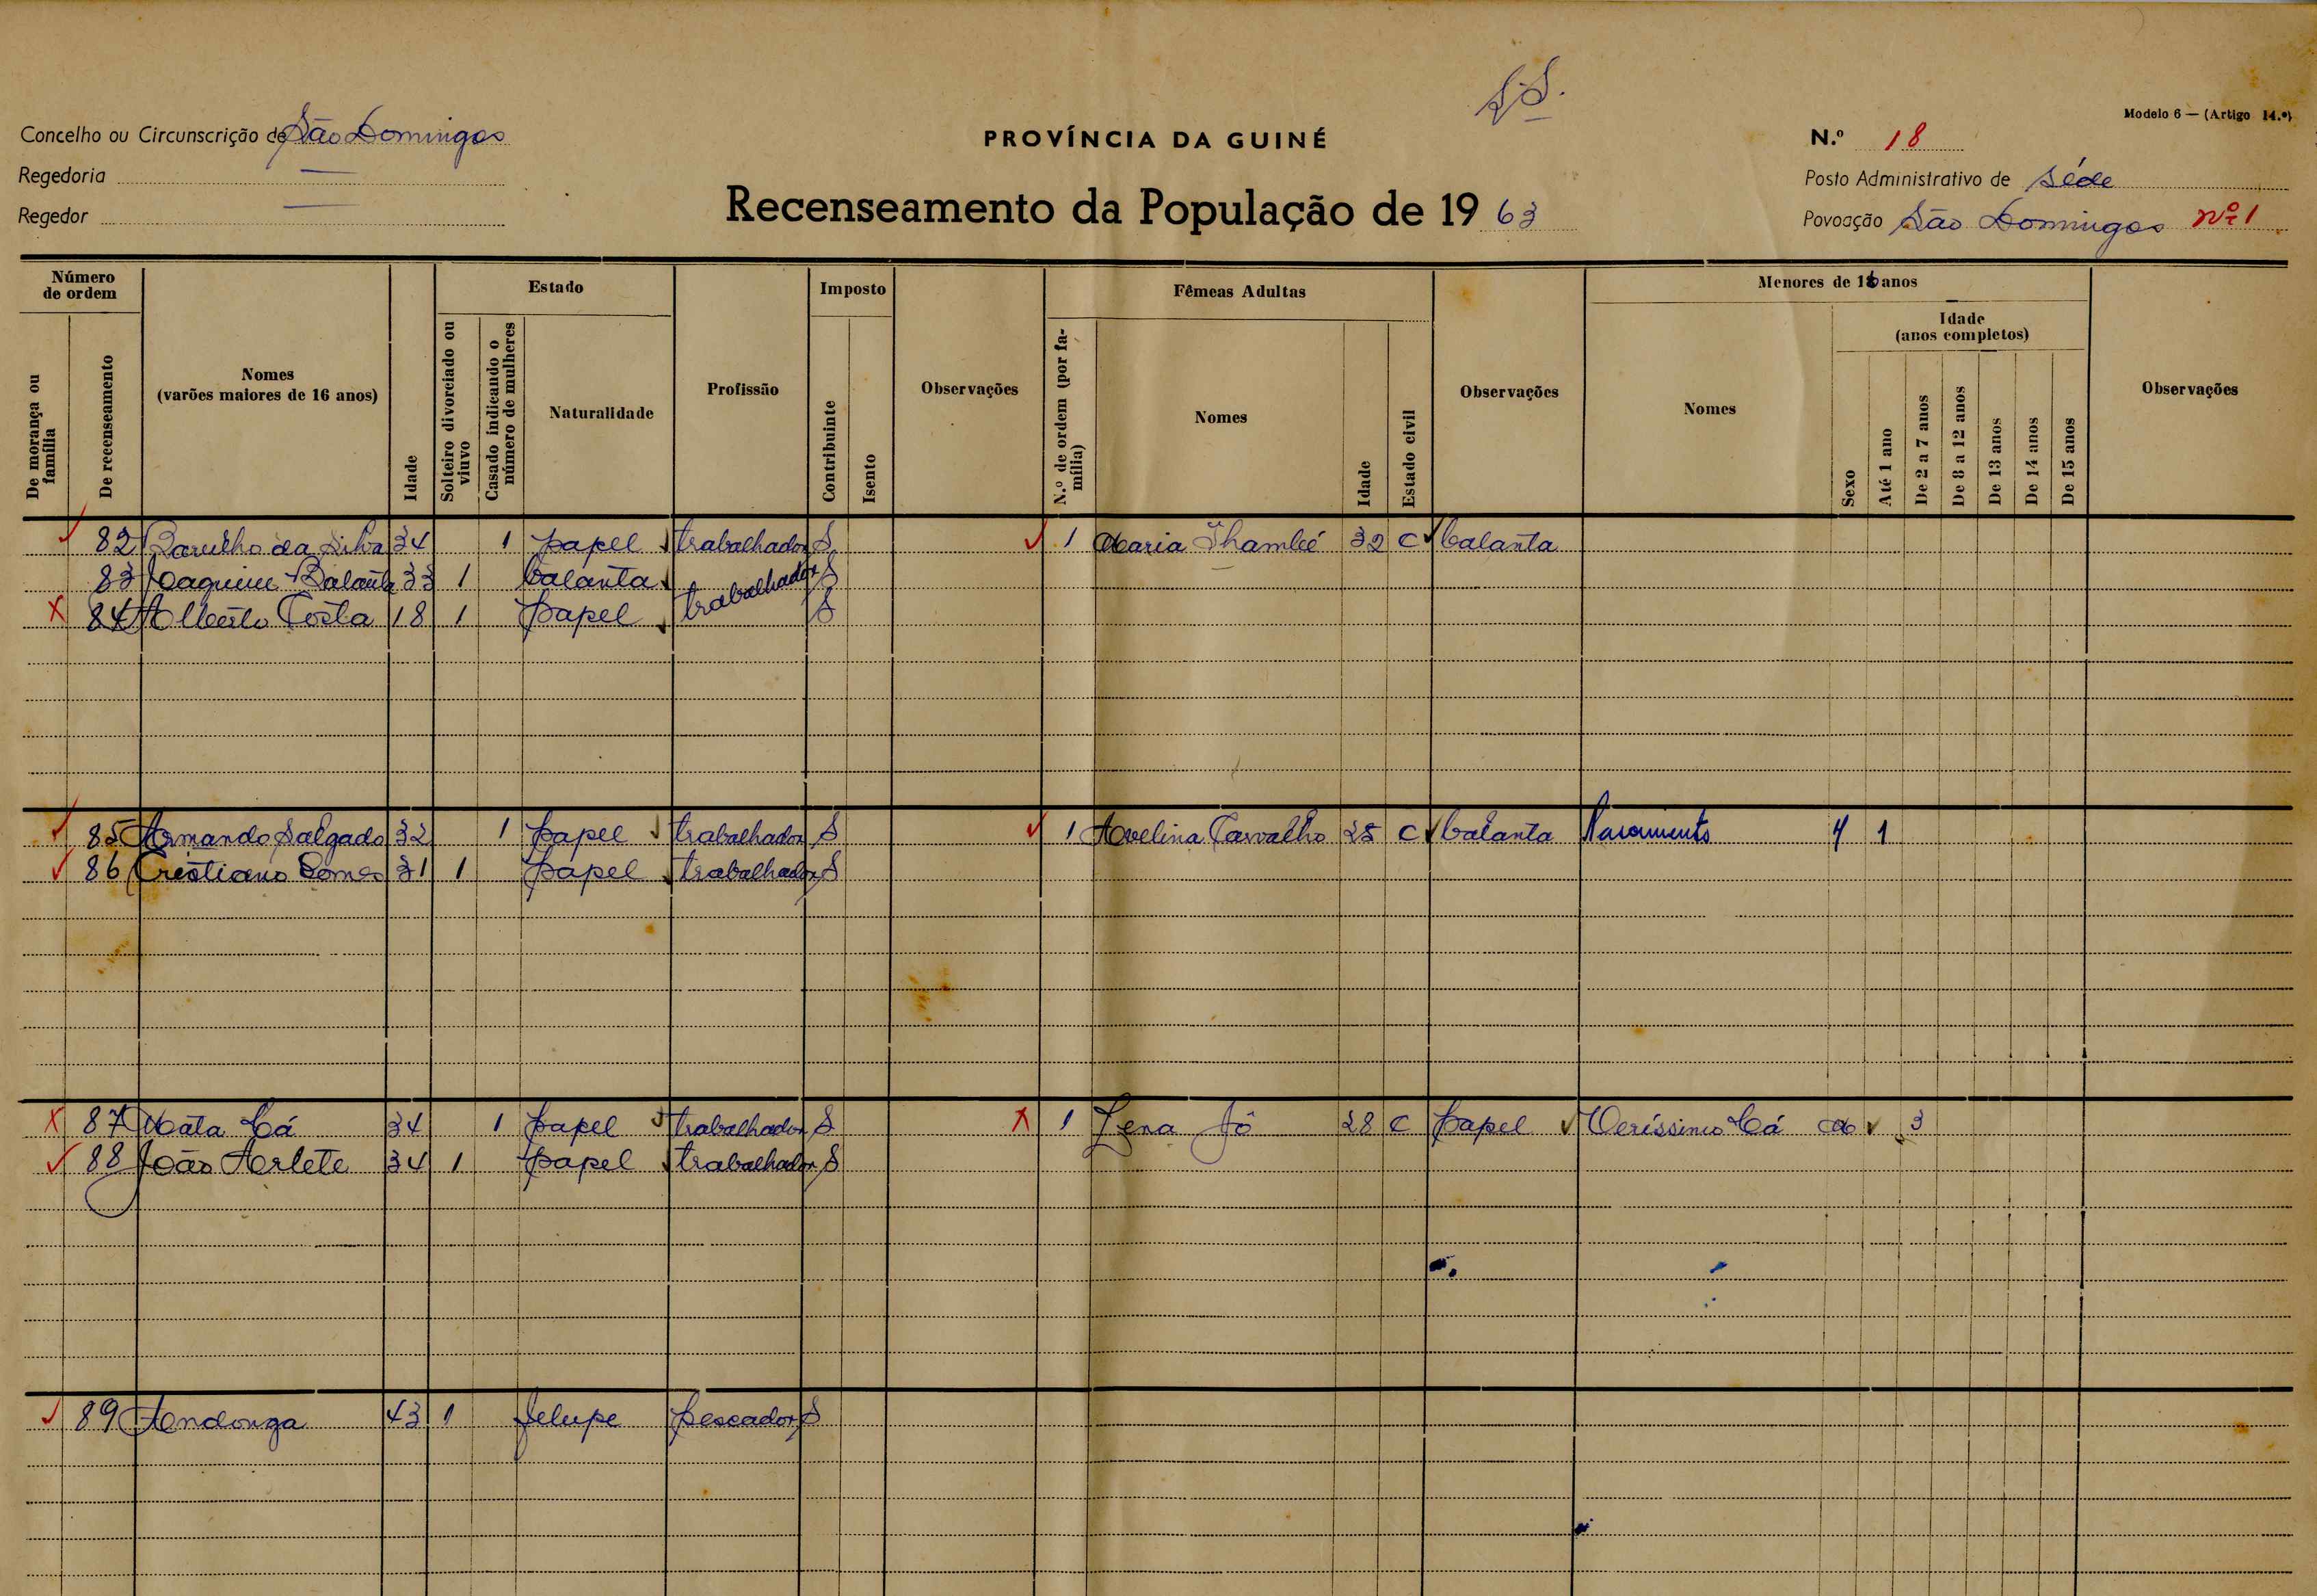 S.S.
Modelo 6 — (Artigo 14.º)
Concelho ou Circunscrição de São Domingos
PROVÍNCIA DA GUINÉ
N.º 18
Regedoria —
Posto Administrativo de Séde
Regedor —
Recenseamento da População de 1963
Povoação São Domingos nº 1
Número de ordem
De morança ou família
De recenseamento
Nomes (varões maiores de 16 anos)
Idade
Estado
Solteiro divorciado ou viuvo
Casado indicando o número de mulheres
Naturalidade
Profissão
Imposto
Contribuinte
Isento
Observações
Fêmeas Adultas
N.º de ordem (por família)
Nomes
Idade
Estado civil
Observações
Menores de 16 anos
Nomes
Sexo
Idade (anos completos)
Até 1 ano
De 2 a 7 anos
De 8 a 12 anos
De 13 anos
De 14 anos
De 15 anos
Observações
✓ 82 da Silva 34 1 papel ✓ trabalhador S ✓ 1 Maria 32 C ✓ balanta
83 Joaquim Balanta 33 1 balanta trabalhador S
X 84 Alberto Costa 18 1 papel ✓ S
✓ 85 Armando Salgado 32 1 papel ✓ trabalhador S ✓ 1 Avelina Carvalho 28 C ✓ balanta Nascimento 1
✓ 86 Cristiano Gomes 31 1 papel ✓ trabalhador S
X 87 Mata Cá 34 1 papel ✓ trabalhador S X 1 Lena Jô 28 C papel ✓ Veríssimo Cá ✓ 3
✓ 88 João Arlete 34 1 papel ✓ trabalhador S
✓ 89 Andonga 43 1 felupe pescador S